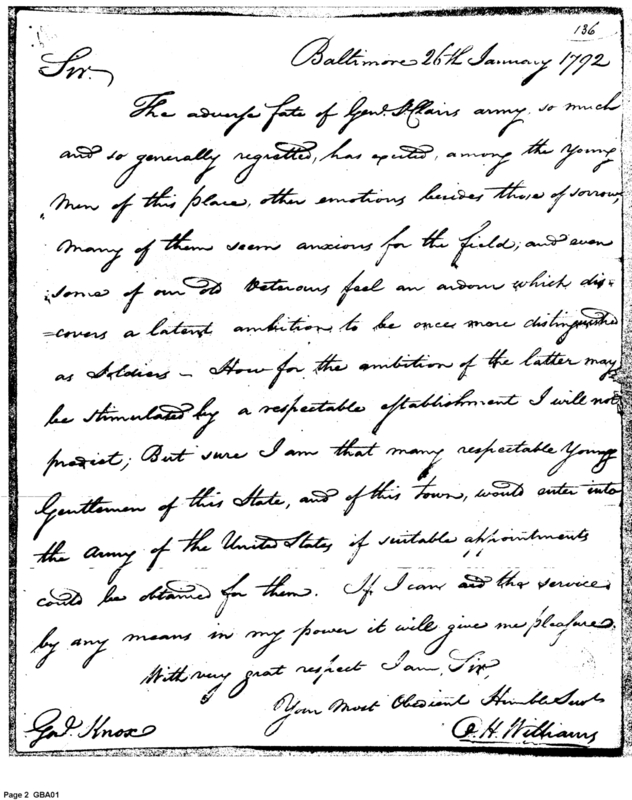 136
Baltimore 26th January 1792
Sir.
The adverse fate of Genl. St Clairs army, so much
and so generally regretted, has excited, among the young
Men of this place, other emotions besides those of sorrow,
Many of them seem anxious for the field; and even
some of our old Veterans feel an ardour which dis=
=covers a latent ambition to be once more distinguished
as Soldiers – How far the ambition of the latter may
be stimulated by a respectable establishment I will not
predict; But sure I am that many respectable Young
Gentlemen of this State, and of this town, would enter into
the Army of the United States if suitable appointments
could be obtained for them. If I can aid the service
by any means in my power it will give me pleasure.
With very great respect I am, Sir,
Your Most Obedient Humble Servt
Genl. Knox
O. H. Williams
Page 2 GBA01